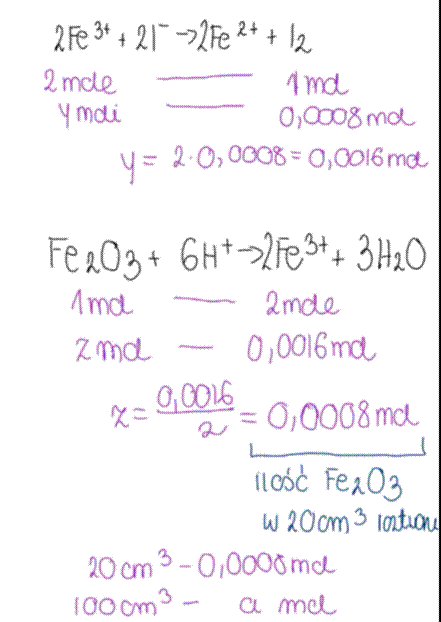 2Fe³⁺ + 2I⁻ → 2Fe²⁺ + I₂
2 mole —— 1 mol
y moli —— 0,0008 mol
y = 2·0,0008 = 0,0016 mol
Fe₂O₃ + 6H⁺ → 2Fe³⁺ + 3H₂O
1 mol — 2 mole
z mol — 0,0016 mol
z = 0,0016/2 = 0,0008 mol
ilość Fe₂O₃
w 20 cm³
20 cm³ - 0,0008 mol
100 cm³ - a mol